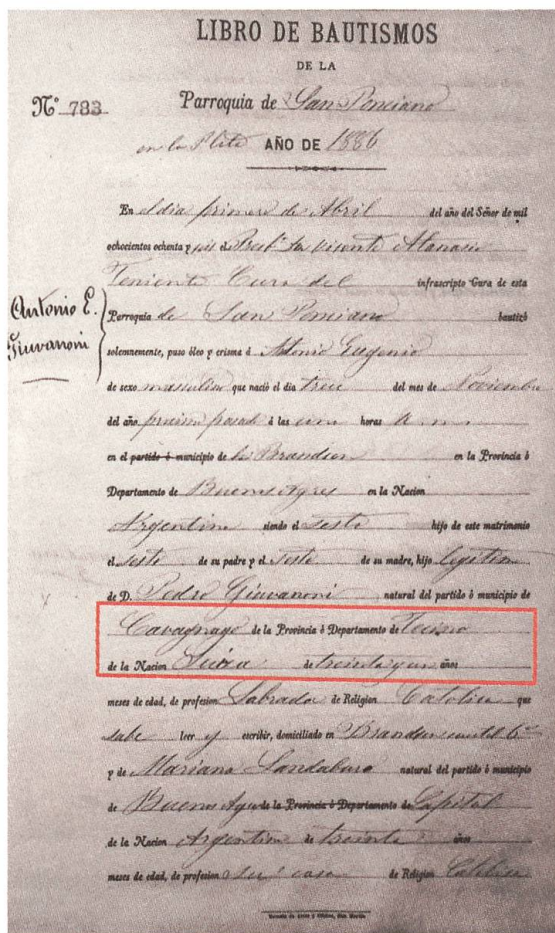 LIBRO DE BAUTISMOS
DE LA
Nº 783
Parroquia de San Ponciano
en la Plata AÑO DE 1886
En el dia primero de Abril del año del Señor de mil
ochocientos ochenta y seis el Vicente Atanacio
Teniente Cura del infrascripto Cura de esta
Antonio E.
Giuvanoni
Parroquia de San Ponciano bautizó
solemnemente, puso óleo y crisma á Antonio Eugenio
de sexo masculino que nació el dia trece del mes de Noviembre
del año proximo pasado á las una horas a m
en el partido ó municipio de Brandsen en la Provincia ó
Departamento de Buenos Ayres en la Nacion
Argentina siendo el Sesto hijo de este matrimonio
el Sesto de su padre y el Sesto de su madre, hijo legitimo
de D. Pedro Giuvanoni natural del partido ó municipio de
Cavagnago de la Provincia ó Departamento de Tecino
de la Nacion Suiza de treinta y un años
meses de edad, de profesion Labrador de Religion Catolica que
sabe leer y escribir, domiciliado en Brandsen cuartel 6º
y de Mariana Landaburo natural del partido ó municipio
de Buenos Ayres de la Provincia ó Departamento de Capital
de la Nacion Argentina de treinta años
meses de edad, de profesion su casa de Religion Catolica